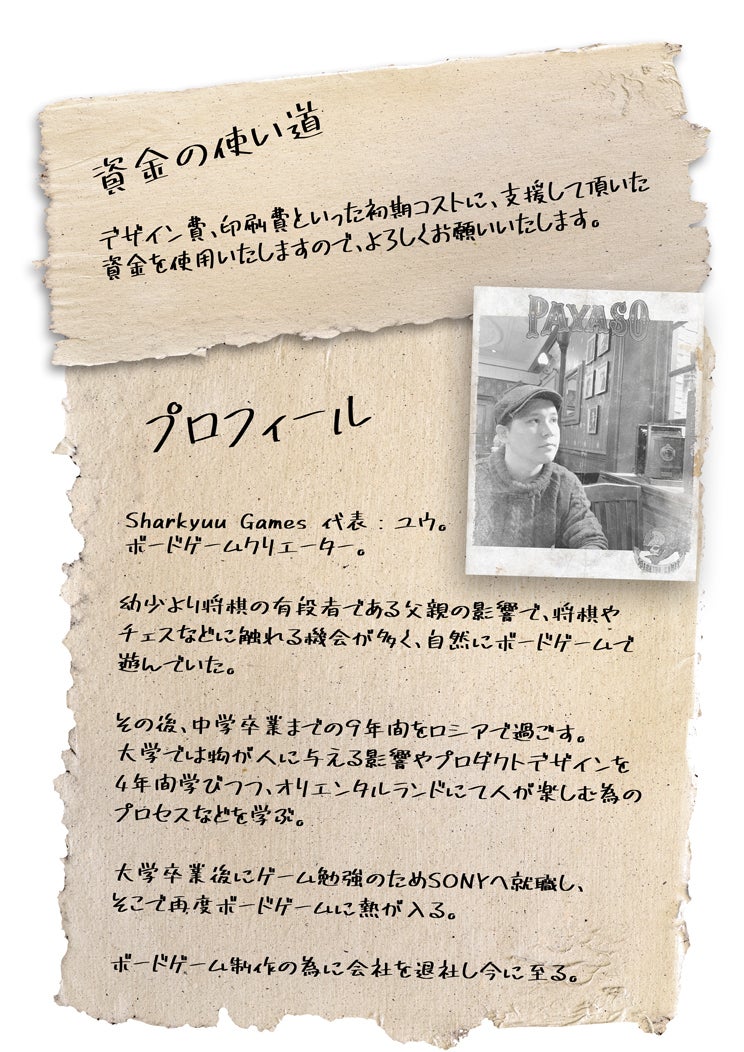 資金の使い道
デザイン費、印刷費といった初期コストに、支援して頂いた
資金を使用いたしますので、よろしくお願いいたします。
PAYASO
プロフィール
Sharkyuu Games 代表 : ユウ。
ボードゲームクリエーター。
幼少より将棋の有段者である父親の影響で、将棋や
チェスなどに触れる機会が多く、自然にボードゲームで
遊んでいた。
その後、中学卒業までの9年間をロシアで過ごす。
大学では物が人に与える影響やプロダクトデザインを
4年間学びつつ、オリエンタルランドにて人が楽しむ為の
プロセスなどを学ぶ。
大学卒業後にゲーム勉強のためSONYへ就職し、
そこで再度ボードゲームに熱が入る。
ボードゲーム制作の為に会社を退社し今に至る。